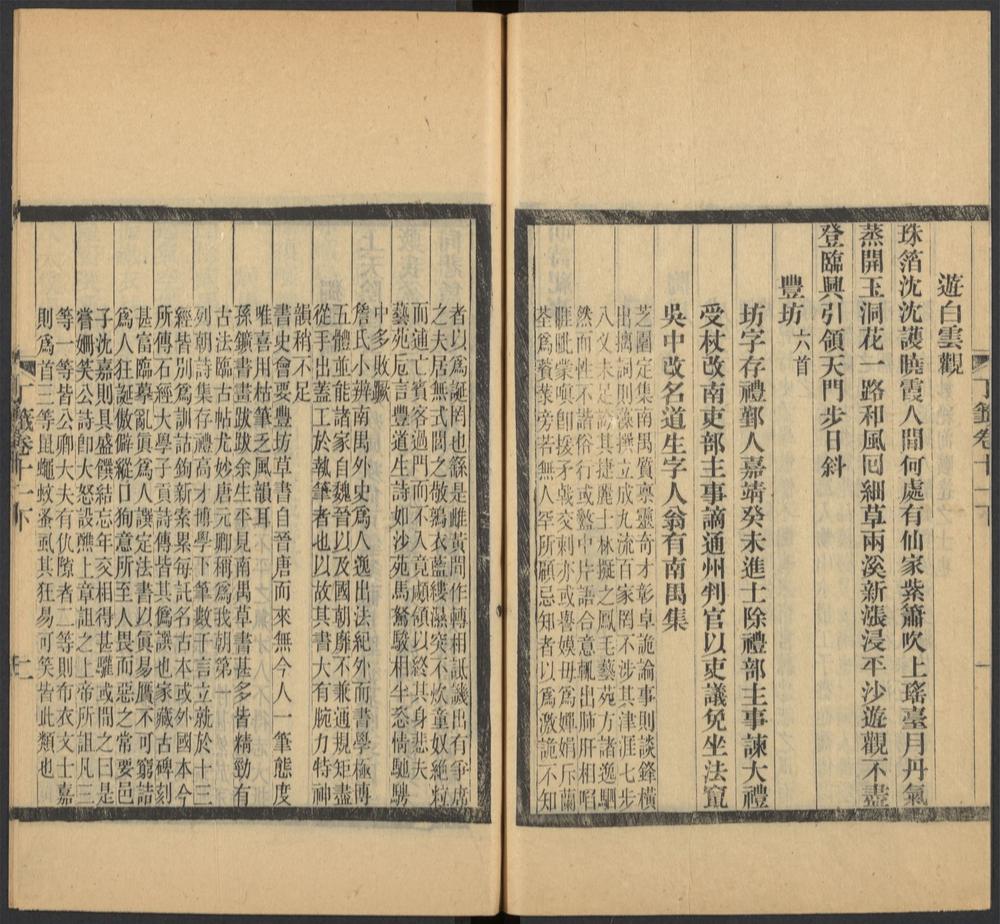 遊白雲觀
珠箔沈沈護曉霞人間何處有仙家紫簫吹上瑤臺月丹氣
蒸開玉洞花一路和風囘細草兩溪新漲浸平沙遊觀不盡
登臨興引領天門步日斜
豐坊六首
坊字存禮鄞人嘉靖癸未進士除禮部主事諫大禮
受杖改南吏部主事謫通州判官以吏議免坐法竄
吳中改名道生字人翁有南禺集
芝園定集南禺質稟靈奇才彰卓詭論事則談鋒橫
出摛詞則藻撰立成九流百家罔不涉其津涯七步
八叉未足諭其捷麗士林擬之鳳毛藝苑方諸逸駟
然而性不諧俗行或盭中片語合意輒出肺肝相啗
睚眦蒙嗔卽援矛戟交刺亦或譽嫫母爲嬋娟斥蘭
荃爲薋菉旁若無人罕所顧忌知者以爲激詭不知
者以爲誕罔也繇是雌黃間作轉相詆譏出有爭席
之夫居無式閭之敬鶉衣藍縷濕突不炊童奴絶粒
而逋亡賓客過門而不入竟顑頷以終其身悲夫
藝苑巵言豐道生詩如沙苑馬駑駿相半恣情馳騁
中多敗蹶
詹氏小辨南禺外史爲人逸出法紀外而書學極博
五體並能諸家自魏晉以及國朝靡不兼通規矩盡
從手出蓋工於執筆者也以故其書大有腕力特神
韻稍不足
書史會要豐坊草書自晉唐而來無今人一筆態度
唯喜用枯筆乏風韻耳
孫鑛書畫跋跋余生平見南禺草書甚多皆精勁有
古法臨古帖尤妙唐元卿稱爲我朝第一
列朝詩集存禮高才博學下筆數千言立就於十三
經皆別爲訓詁鉤新索累每託名古本或外國本今
所傳石經大學子貢詩傳皆其僞譔也家藏古碑刻
甚富臨摹亂眞爲人譔定法書以眞易贋不可窮詰
爲人狂誕傲僻縱口狥意所至人畏而惡之常要邑
子沈嘉則具盛饌結忘年交相得甚驩或間之曰是
嘗姍笑公詩卽大怒設醮上章詛之上帝所詛凡三
等一等皆公卿大夫有仇隙者二等則布衣文士嘉
則爲首三等鼠蠅蚊蚤虱其狂易可笑皆此類也